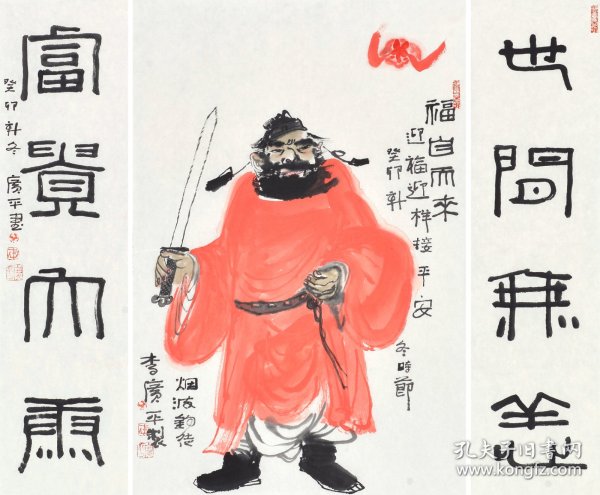 世間無恙
富貴而康
癸卯秋冬 廣平畫
福自而来
迎福迎祥接平安
癸卯秋
冬時節
烟波钓徒
李廣平製
孔夫子旧书网
www.kongfz.com